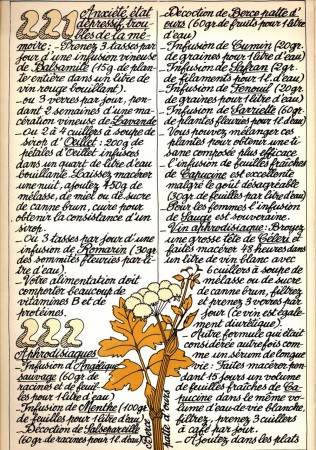 221 Anxiété état
dépressif, trou-
bles de la mé-
moire: - Prenez 3 tasses par
jour d'une infusion vineuse
de Balsamite (15g de plan-
te entière dans un litre de
vin rouge bouillant).
- ou 3 verres par jour, pen-
dant 2 semaines d'une ma-
cération vineuse de Lavande
- Ou 2 à 4 cuillers à soupe de
sirop d'Oeillet : 200g de
pétales d'Oeillet infusés
dans un quart de litre d'eau
bouillante. Laissez macérer
une nuit, ajoutez 450g de
mélasse, de miel ou de sucre
de canne brun, cuire pour
obtenir la consistance d'un
sirop.
- Ou 3 tasses par jour d'une
infusion de Romarin (30gr
des sommités fleuries par li-
tre d'eau).
- Votre alimentation doit
comporter beaucoup de
vitamines B et de
protéines.
222
Aphrodisiaques
- Infusion d'Angélique
sauvage (60gr de
racines et de feuil-
les pour 1 litre d'eau)
- Infusion de Menthe (100gr
de feuilles pour 1 litre d'eau)
- Décoction de Salsepareille
(60gr de racines pour 1l. d'eau)
- Décoction de Berce patte d'
ours (60gr de fruits pour 1 litre
d'eau)
- Infusion de Cumin (20gr.
de graines pour 1 litre d'eau)
- Infusion de Safran (2gr.
de filaments pour 1l. d'eau)
- Infusion de Fenouil (20gr.
de graines pour 1 litre d'eau)
- Infusion de Sarriette (60gr.
de plantes fleuries pour 1l. d'eau)
Vous pouvez mélanger ces
plantes pour obtenir une ti-
sane composée plus efficace.
- L'infusion de feuilles fraîches
de Capucine est excellente
malgré le goût désagréable
(30gr de feuilles par litre d'eau)
Pour les femmes l'infusion
de Sauge est souveraine.
- Vin aphrodisiaque: Broyez
une grosse tête de Céleri et
faites macérer 48 heures dans
un litre de vin blanc avec
6 cuillers à soupe de
mélasse ou de sucre
de canne brun, filtrez
et prenez 3 verres par
jour (ce vin est égale-
ment diurétique).
- Autre formule qui était
considérée autrefois com-
me un sérum de longue
vie: Faites macérer pen-
dant 15 jours un volume
de feuilles fraîches de Ca-
pucine dans le même vo-
lume d'eau-de-vie blanche,
filtrez, prenez 3 cuillers
à café par jour.
- Ajoutez dans les plats
Berce patte d'ours